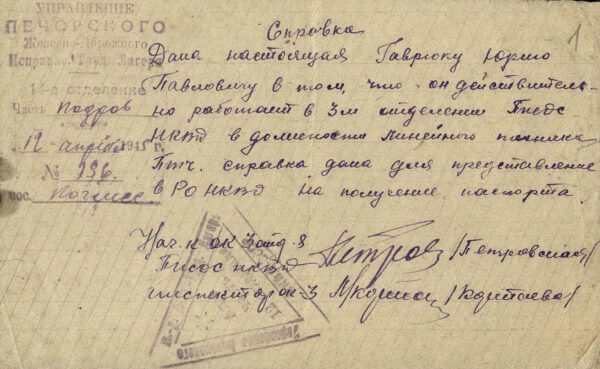 УПРАВЛЕНИЕ
ПЕЧОРСКОГО
Железно-Дорожного
Исправит. Труд. Лагеря
14-е отделение
Часть кадров
12 апреля 1941 г.
№ 136
пос.
1
Справка
Дана настоящая Гаврюку Юрию
Павловичу в том, что он действитель-
но работает в 3м отделении
НКВД в должности линейного техника
справка дана для представление
в РО НКВД на получение паспорта
Нач-к ОК
НКВД Петров /Петровская/
инспектор ОК-3 /Коритаева/